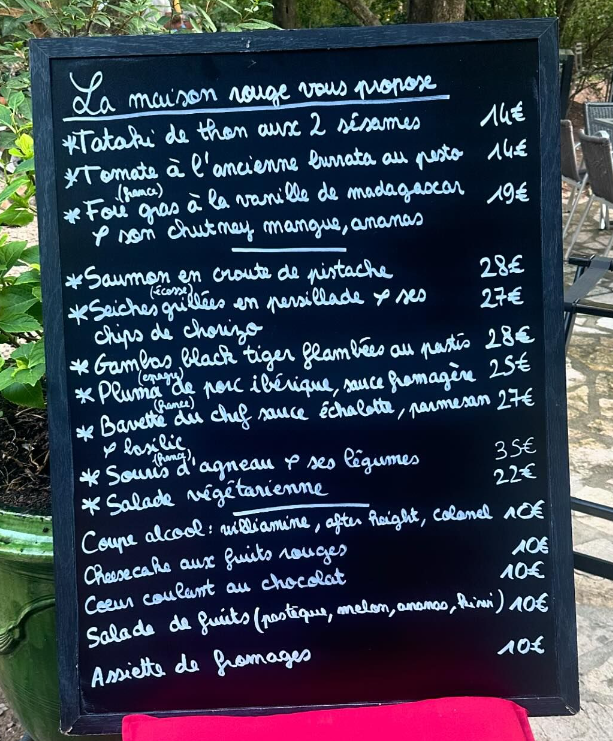 La maison rouge vous propose
*Tataki de thon aux 2 sésames 14€
*Tomate à l'ancienne burrata au pesto 14€
(france)
*Foie gras à la vanille de madagascar 19€
& son chutney mangue, ananas
*Saumon en croute de pistache 28€
(écosse)
*Seiches grillées en persillade & ses 27€
chips de chorizo
*Gambas black tiger flambées au pastis 28€
(espagne)
*Pluma de porc ibérique, sauce fromagère 25€
(france)
*Bavette du chef sauce échalotte, parmesan 27€
& basilic
(france)
*Souris d'agneau & ses légumes 35€
*Salade végétarienne 22€
Coupe alcool: williamine, after height, colonel 10€
Cheesecake aux fruits rouges 10€
Coeur coulant au chocolat 10€
Salade de fruits (pastèque, melon, ananas, kiwi) 10€
Assiette de fromages 10€